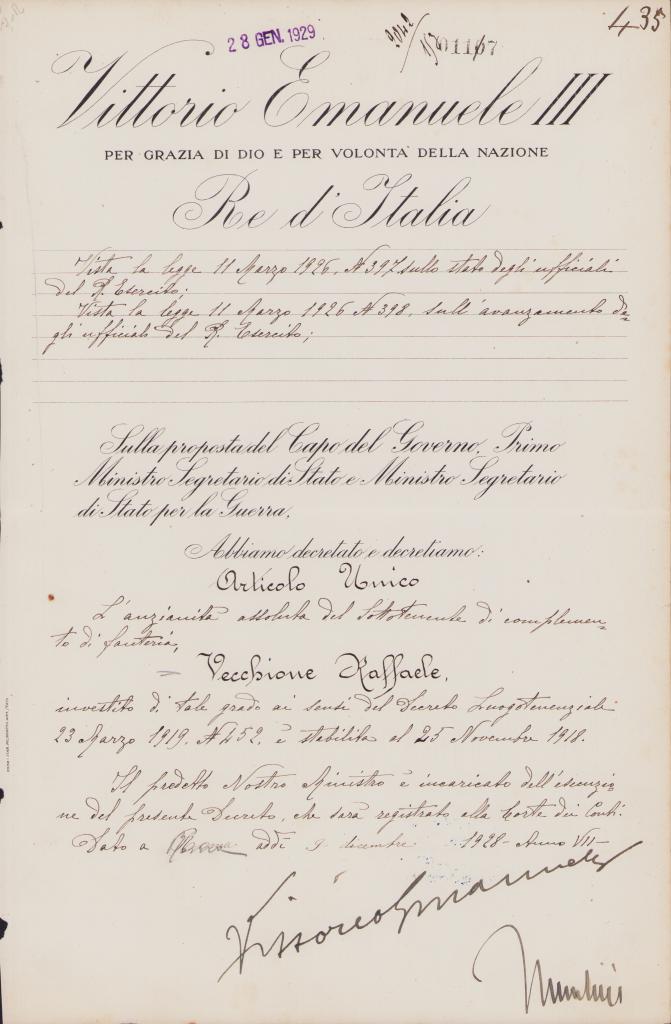 28 GEN. 1929
435
Vittorio Emanuele III
PER GRAZIA DI DIO E PER VOLONTA' DELLA NAZIONE
Re d'Italia
Vista la legge 11 Marzo 1926, N 397 sullo stato degli ufficiali
del R. Esercito;
Vista la legge 11 Marzo 1926 N 398, sull'avanzamento de=
gli ufficiali del R. Esercito;
Sulla proposta del Capo del Governo, Primo
Ministro Segretario di Stato e Ministro Segretario
di Stato per la Guerra,
Abbiamo decretato e decretiamo:
Articolo Unico
L'anzianità assoluta del Sottotenente di complemen=
to di fanteria,
Vecchione Raffaele,
investito di tale grado ai sensi del Decreto Luogotenenziale
23 Marzo 1919, N 452, è stabilita al 25 Novembre 1918.
Il predetto Nostro Ministro è incaricato dell'esecuzio=
ne del presente Decreto, che sarà registrato alla Corte dei Conti.
Dato a Roma addì 9 dicembre 1928 - Anno VII -
Vittorio Emanuele